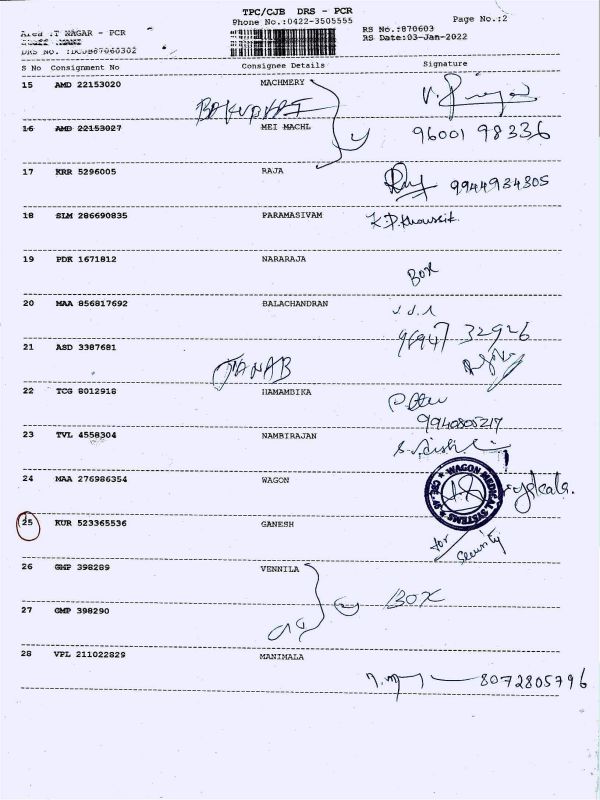 TPC/CJB DRS - PCR
Phone No.:0422-3505555
Page No.:2
Area :T NAGAR - PCR
RS No.:870603
RS Date:03-Jan-2022
DRS No. :TDCJB67060302
S No Consignment No Consignee Details Signature
15 AMD 22153020 MACHMERY
16 AMD 22153027 MEI MACHL
9600198336
17 KRR 5296005 RAJA
9944934305
18 SLM 286690835 PARAMASIVAM
19 PDK 1671812 NARARAJA
BOX
20 MAA 856817692 BALACHANDRAN
96947 32926
21 ASD 3387681
JANAB
22 TCG 8012918 HAMAMBIKA
9940805217
23 TVL 4558304 NAMBIRAJAN
24 MAA 276986354 WAGON
WAGON MEDICAL SYSTEMS
25 KUR 523365536 GANESH
for security
26 GMP 398289 VENNILA
BOX
27 GMP 398290
28 VPL 211022829 MANIMALA
8072805796